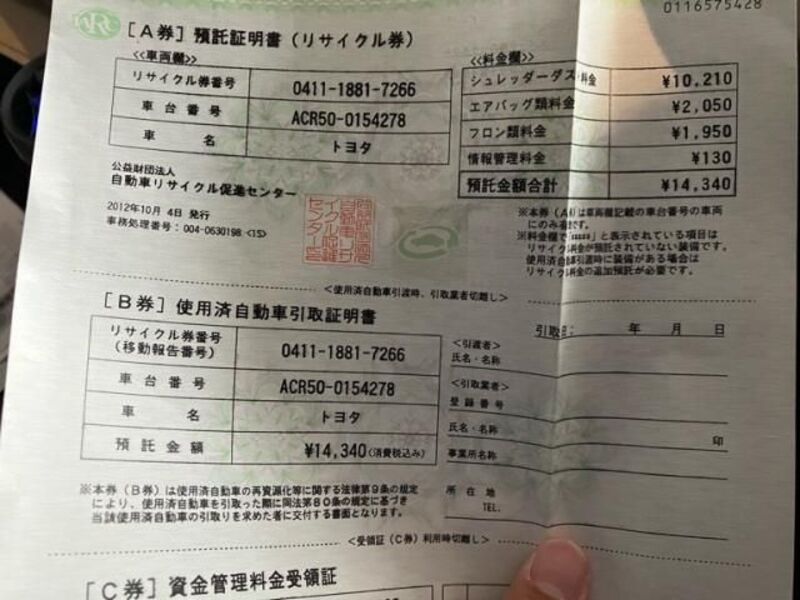 0116575428
ARC
[A券] 預託証明書 (リサイクル券)
<<車両欄>>
リサイクル券番号 0411-1881-7266
車台番号 ACR50-0154278
車名 トヨタ
<<料金欄>>
シュレッダーダス 料金 ¥10,210
エアバッグ類料金 ¥2,050
フロン類料金 ¥1,950
情報管理料金 ¥130
預託金額合計 ¥14,340
公益財団法人
自動車リサイクル促進センター
2012年10月 4日 発行
事務処理番号:004-0630198 <1S>
※本券(A券)は車両欄記載の車台番号の車両
にのみ有効です。
※料金欄で「*****」と表示されている項目は
リサイクル料金が預託されていない装備です。
使用済自動車引渡時に装備がある場合は
リサイクル料金の追加預託が必要です。
<使用済自動車引渡時、引取業者切離し>
[B券] 使用済自動車引取証明書
リサイクル券番号
(移動報告番号) 0411-1881-7266
車台番号 ACR50-0154278
車名 トヨタ
預託金額 ¥14,340(消費税込み)
引取日: 年 月 日
<引渡者>
氏名・名称
<引取業者>
登録番号
氏名・名称 印
事業所名称
所在地
TEL.
※本券(B券)は使用済自動車の再資源化等に関する法律第9条の規定
により、使用済自動車を引取った際に同法第80条の規定に基づき
当該使用済自動車の引取りを求めた者に交付する書面となります。
<受領証(C券)利用時切離し>
[C券] 資金管理料金受領証